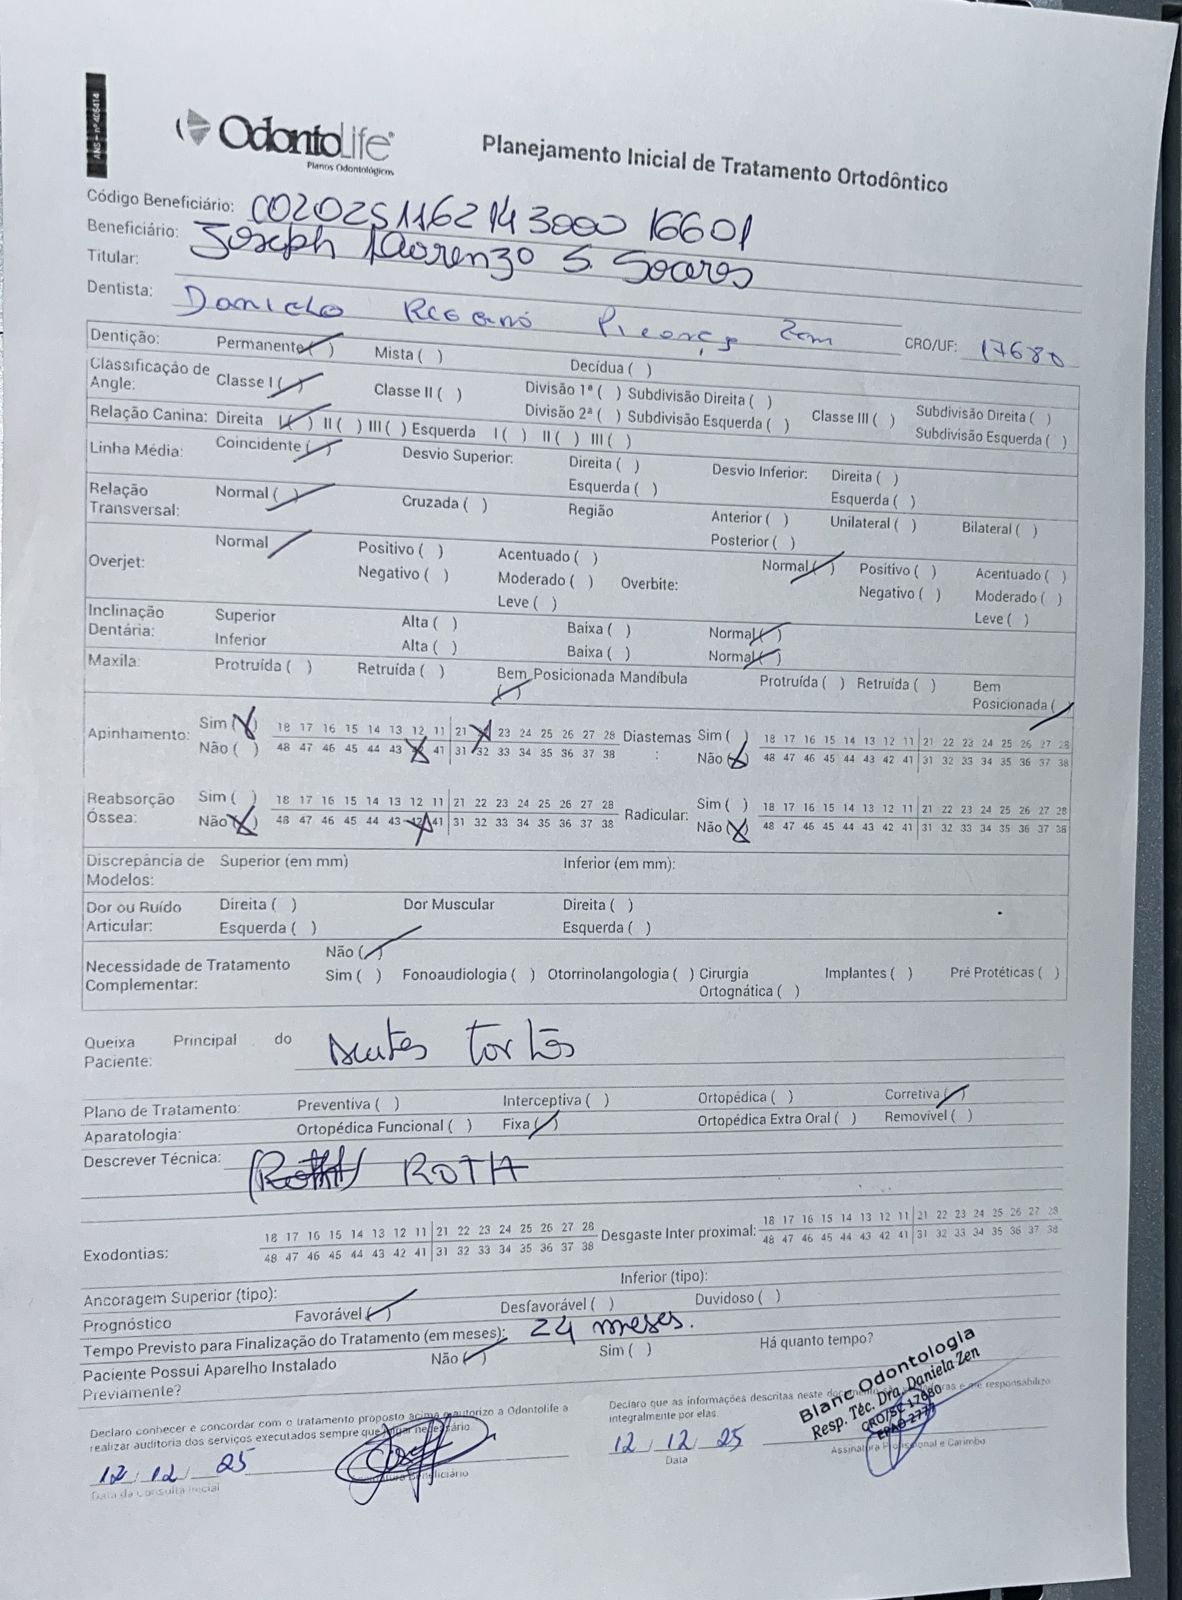 ANS - nº 406414
OdontoLife®
Planos Odontológicos
Planejamento Inicial de Tratamento Ortodôntico
Código Beneficiário: 00202511621430001 6601
Beneficiário: Joseph Lorenzo S. Soares
Titular:
Dentista: Daniela Zen CRO/UF: 17680
Dentição: Permanente ( ) Mista ( ) Decídua ( )
Classificação de Angle: Classe I ( ) Classe II ( ) Divisão 1ª ( ) Subdivisão Direita ( ) Classe III ( ) Subdivisão Direita ( )
Divisão 2ª ( ) Subdivisão Esquerda ( ) Subdivisão Esquerda ( )
Relação Canina: Direita I ( ) II ( ) III ( ) Esquerda I ( ) II ( ) III ( )
Linha Média: Coincidente ( ) Desvio Superior: Direita ( ) Desvio Inferior: Direita ( )
Esquerda ( ) Esquerda ( )
Relação Transversal: Normal ( ) Cruzada ( ) Região Anterior ( ) Unilateral ( ) Bilateral ( )
Posterior ( )
Overjet: Normal Positivo ( ) Acentuado ( ) Overbite: Normal ( ) Positivo ( ) Acentuado ( )
Negativo ( ) Moderado ( ) Negativo ( ) Moderado ( )
Leve ( ) Leve ( )
Inclinação Dentária: Superior Alta ( ) Baixa ( ) Normal ( )
Inferior Alta ( ) Baixa ( ) Normal ( )
Maxila: Protruída ( ) Retruída ( ) Bem Posicionada ( ) Mandíbula Protruída ( ) Retruída ( ) Bem Posicionada ( )
Apinhamento: Sim (X) 18 17 16 15 14 13 12 11 21 23 24 25 26 27 28 Diastemas: Sim ( ) 18 17 16 15 14 13 12 11 21 22 23 24 25 26 27 28
Não ( ) 48 47 46 45 44 43 41 31 32 33 34 35 36 37 38 Não (X) 48 47 46 45 44 43 42 41 31 32 33 34 35 36 37 38
Reabsorção Óssea: Sim ( ) 18 17 16 15 14 13 12 11 21 22 23 24 25 26 27 28 Radicular: Sim ( ) 18 17 16 15 14 13 12 11 21 22 23 24 25 26 27 28
Não (X) 48 47 46 45 44 43 42 41 31 32 33 34 35 36 37 38 Não (X) 48 47 46 45 44 43 42 41 31 32 33 34 35 36 37 38
Discrepância de Modelos: Superior (em mm) Inferior (em mm):
Dor ou Ruído Articular: Direita ( ) Dor Muscular Direita ( )
Esquerda ( ) Esquerda ( )
Necessidade de Tratamento Complementar: Não ( )
Sim ( ) Fonoaudiologia ( ) Otorrinolangologia ( ) Cirurgia Ortognática ( ) Implantes ( ) Pré Protéticas ( )
Queixa Principal do Paciente: Dentes tortos
Plano de Tratamento: Preventiva ( ) Interceptiva ( ) Ortopédica ( ) Corretiva ( )
Aparatologia: Ortopédica Funcional ( ) Fixa ( ) Ortopédica Extra Oral ( ) Removível ( )
Descrever Técnica: ROTH
Exodontias: 18 17 16 15 14 13 12 11 21 22 23 24 25 26 27 28 Desgaste Inter proximal: 18 17 16 15 14 13 12 11 21 22 23 24 25 26 27 28
48 47 46 45 44 43 42 41 31 32 33 34 35 36 37 38 48 47 46 45 44 43 42 41 31 32 33 34 35 36 37 38
Ancoragem Superior (tipo): Inferior (tipo):
Prognóstico Favorável ( ) Desfavorável ( ) Duvidoso ( )
Tempo Previsto para Finalização do Tratamento (em meses): 24 meses.
Paciente Possui Aparelho Instalado Previamente? Não ( ) Sim ( ) Há quanto tempo?
Declaro conhecer e concordar com o tratamento proposto acima e autorizo a Odontolife a
realizar auditoria dos serviços executados sempre que julgar necessário.
12 / 12 / 25
Data da Consulta Inicial
Assinatura Beneficiário
Declaro que as informações descritas neste documento são verdadeiras e me responsabilizo
integralmente por elas.
12 / 12 / 25
Data
Blanc Odontologia
Resp. Téc. Dra. Daniela Zen
CRO/SC 17680
EPAO 2777
Assinatura Profissional e Carimbo